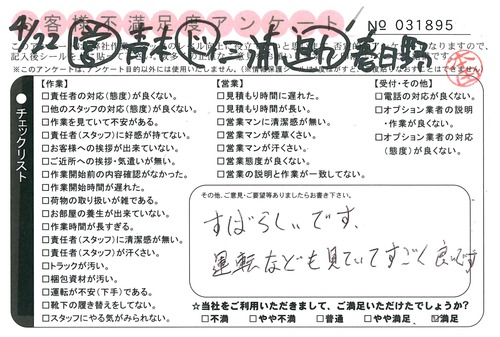 お客様不満足度アンケート
№ 031895
4/22 営 青木 ド 三浦 運 春日野
※このアンケートは、アンケート目的以外には使用いたしません。
チェックリスト
【作業】
□責任者の対応(態度)が良くない。
□他のスタッフの対応(態度)が良くない。
□作業を見ていて不安がある。
□責任者(スタッフ)に好感が持てない。
□お客様への挨拶が出来ていない。
□ご近所への挨拶・気遣いが無い。
□作業開始前の内容確認がなかった。
□作業開始時間が遅れた。
□荷物の取り扱いが雑である。
□お部屋の養生が出来ていない。
□作業時間が長すぎる。
□責任者(スタッフ)に清潔感が無い。
□責任者(スタッフ)が汗くさい。
□トラックが汚い。
□梱包資材が汚い。
□運転が不安(下手)である。
□靴下の履き替えをしてない。
□スタッフにやる気がみられない。
【営業】
□見積もり時間に遅れた。
□見積もり時間が長い。
□営業マンに清潔感が無い。
□営業マンが煙草くさい。
□営業マンが汗くさい。
□営業態度が良くない。
□営業の説明と作業が一致してない。
【受付・その他】
□電話の対応が良くない。
□オプション業者の説明・作業が良くない。
□オプション業者の対応(態度)が良くない。
その他、ご意見・ご要望等ありましたらお書き下さい。
すばらしいです、
運転なども見ていてすごく良いです
☆当社をご利用いただきまして、ご満足いただけたでしょうか?
□不満 □やや不満 □普通 □やや満足 ☑満足